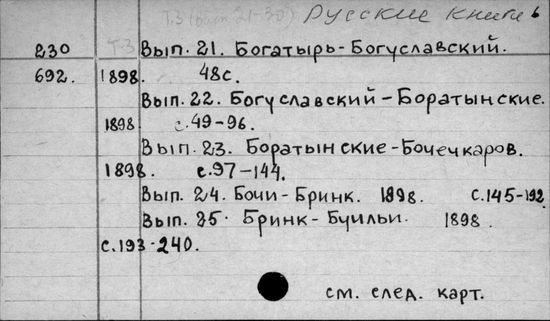 Т.3 (вып. 21-30) Русские книги 6
230 Т.3 Вып. 21. Богатырь-Богуславский.
692. 1898. 48с.
Вып. 22. Богуславский-Боратынские.
1898 с.49-96.
Вып. 23. Боратынские-Бочечкаров.
1898. с.97-144.
Вып. 24. Бочи-Бринк. 1898. с.145-192
Вып. 25. Бринк-Буильи. 1898.
с.193-240.
см. след. карт.